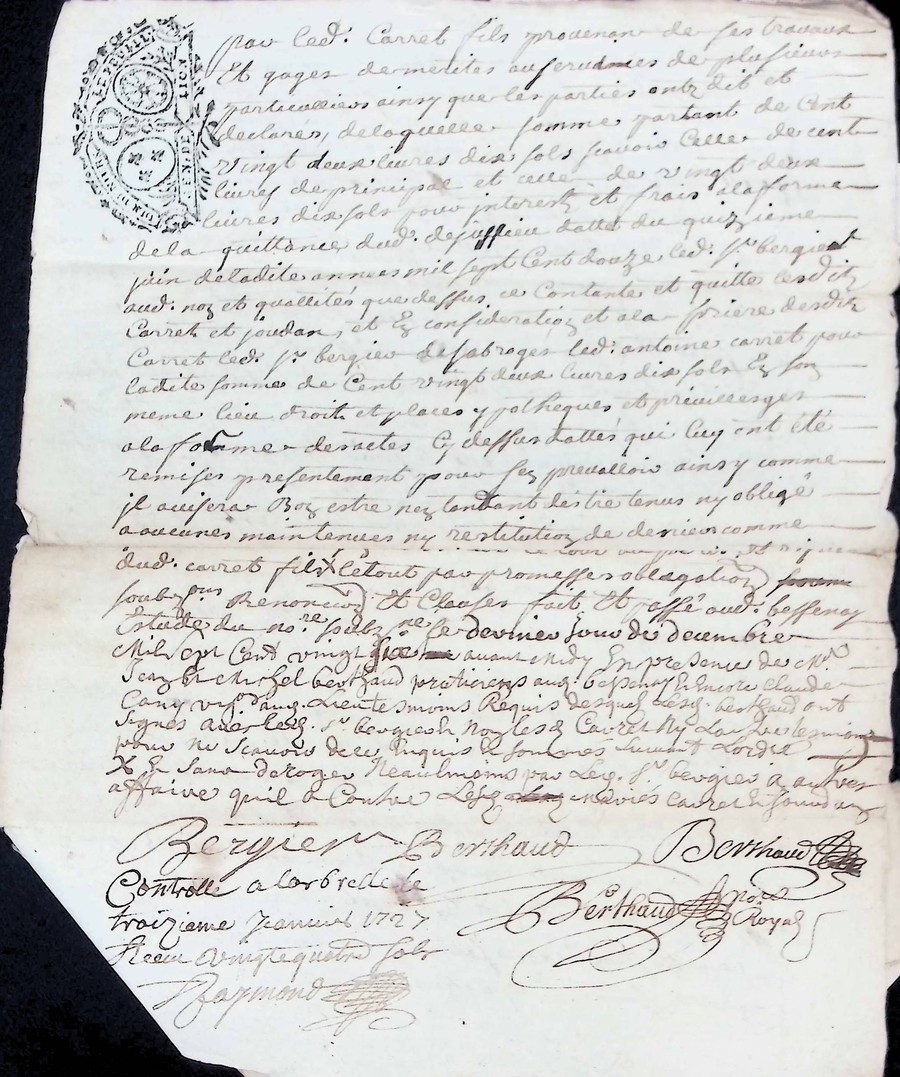 par led. Carret fils provenan de ses travaux
Et gages de merites au services de plusieurs
particulliers ainsy que les parties ont dit et
declarés, de laquelle somme partant de Cent
vingt deux livres dix sols scavoir Celle de cent
livres de principal et celle de vingt deux
livres dix sols pour interestz et frais a la forme
de la quittance dud. dejussieu dattée du quizieme
juin de ladite annees mil sept Cent douze led. sr. bergier
aud. noz et quallités que dessus, ce Contante et quitte lesditz
Carret et joudan, et En consideration et a la priere desditz
Carret led. sr. bergier led. antoine carret pour
ladite somme de Cent vingt deux livres dix sols En son
meme lieu droit et places ypotheques et previlleges
a la forme des actes Cy dessus dattés qui luy ont été
remises presentement pour sen prevalloir ainsy comme
il avisera Bon estre nentandant destre tenus ny obligé
a aucunes maintenues ny restitution de deniers comme
dud. carret fils X Le tout par promesses obligation
soubz ons Renoncion Et Clauses fait Et passé aud. bessenay
Estude du nore. soubz ne Le dernier jour de decembre
Mil sept Cent vingt six avant Midy En presence de Mre
Jean Bt Michel berthaud praticiens aud. bessenay Et Encore Claude
aud. Lieu tesmoins Requis desquels Lesd. berthaud ont
signés avec led. sr. bergier Non lesd. Carret Ny
pour ne scavoir de ce Enquis Et sommes suivant Lordce
X Et sans deroger Neaulmoins par Led. sr. bergier a autres
affaire quil a Contre Lesd. mariés Carret Et joudan
Bergier Berthaud Berthaud
Controllé a Larbrelle le
troizieme Janvier 1727
Receu vingtequatre sols
Raymond
Berthaud nore Royal